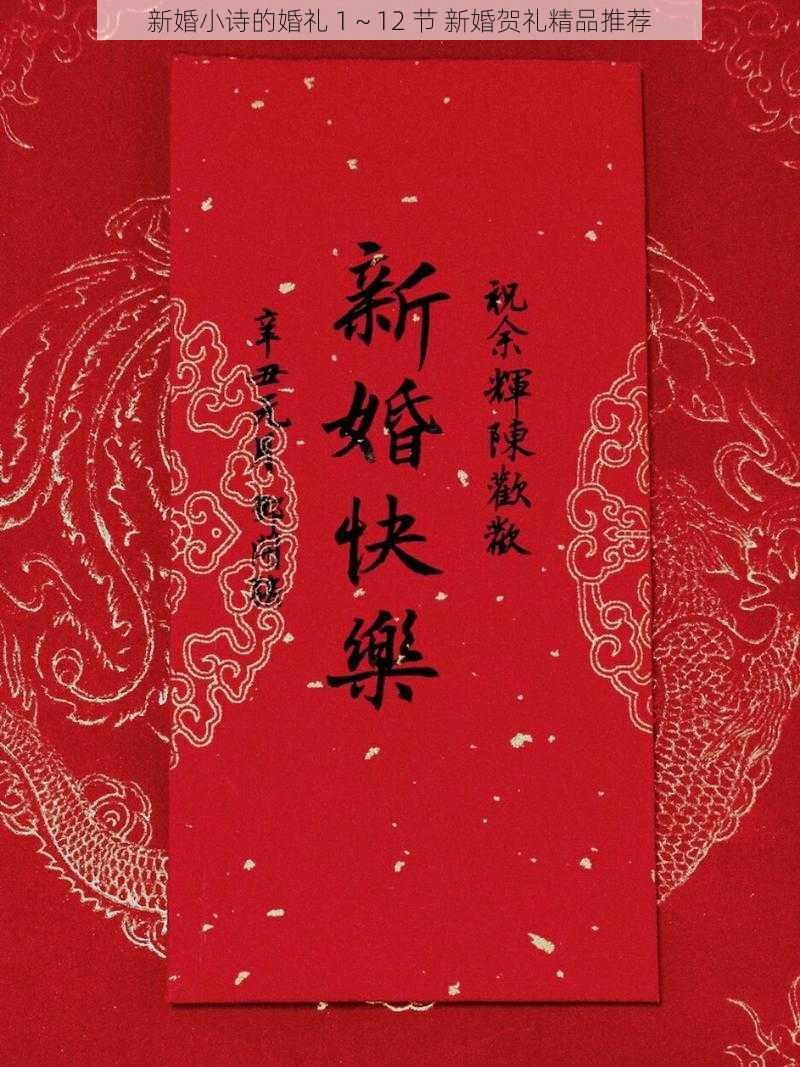 新婚小诗的婚礼 1～12 节 新婚贺礼精品推荐
祝余輝陳歡歡
新婚快樂
辛丑元月